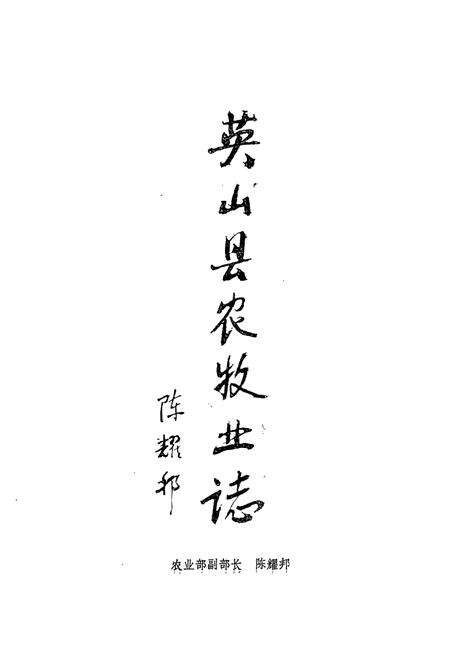 英山县农牧业誌
陈耀邦
农业部副部长 陈耀邦